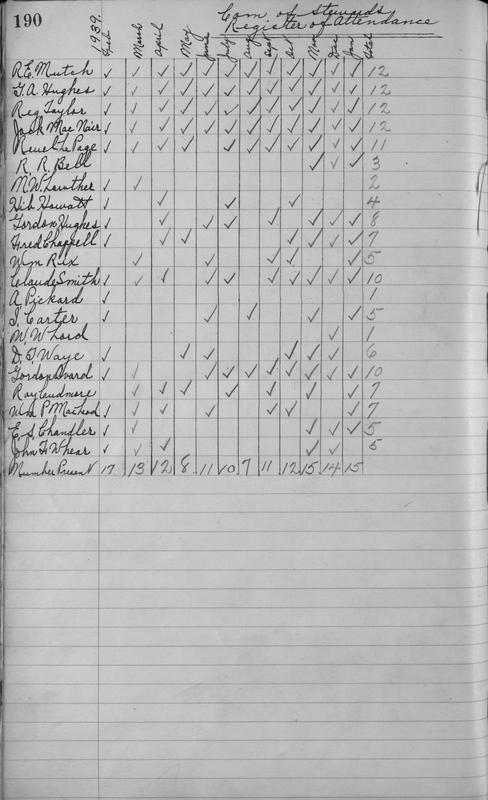 190
Com. of Stewards
Register of Attendance
1939. Feb March April May June July Aug Sept Oct Nov Dec Jan Total
R.E. Mutch ✓ ✓ ✓ ✓ ✓ ✓ ✓ ✓ ✓ ✓ ✓ ✓ 12
G.A. Hughes ✓ ✓ ✓ ✓ ✓ ✓ ✓ ✓ ✓ ✓ ✓ ✓ 12
Reg Taylor ✓ ✓ ✓ ✓ ✓ ✓ ✓ ✓ ✓ ✓ ✓ ✓ 12
Jack MacNair ✓ ✓ ✓ ✓ ✓ ✓ ✓ ✓ ✓ ✓ ✓ ✓ 12
Reuel LePage ✓ ✓ ✓ ✓ ✓ ✓ ✓ ✓ ✓ ✓ ✓ 11
R. R. Bell ✓ ✓ ✓ 3
M.W. Lowther ✓ ✓ 2
Hib Howatt ✓ ✓ ✓ ✓ 4
Gordon Hughes ✓ ✓ ✓ ✓ ✓ ✓ ✓ ✓ 8
Fred Chappell ✓ ✓ ✓ ✓ ✓ ✓ ✓ 7
Wm Rix ✓ ✓ ✓ ✓ ✓ 5
Claude Smith ✓ ✓ ✓ ✓ ✓ ✓ ✓ ✓ ✓ ✓ 10
A. Pickard ✓ 1
J. Carter ✓ ✓ ✓ ✓ ✓ 5
W. W Lord ✓ 1
D. D. Waye ✓ ✓ ✓ ✓ ✓ ✓ 6
Gordon Dvard ✓ ✓ ✓ ✓ ✓ ✓ ✓ ✓ ✓ ✓ 10
Ray Cudmore ✓ ✓ ✓ ✓ ✓ ✓ ✓ 7
Wm P. MacLeod ✓ ✓ ✓ ✓ ✓ ✓ ✓ 7
E. S. Chandler ✓ ✓ ✓ ✓ ✓ 5
John H Whear ✓ ✓ ✓ ✓ ✓ 5
Number Present 17 13 12 8 11 10 7 11 12 15 14 15